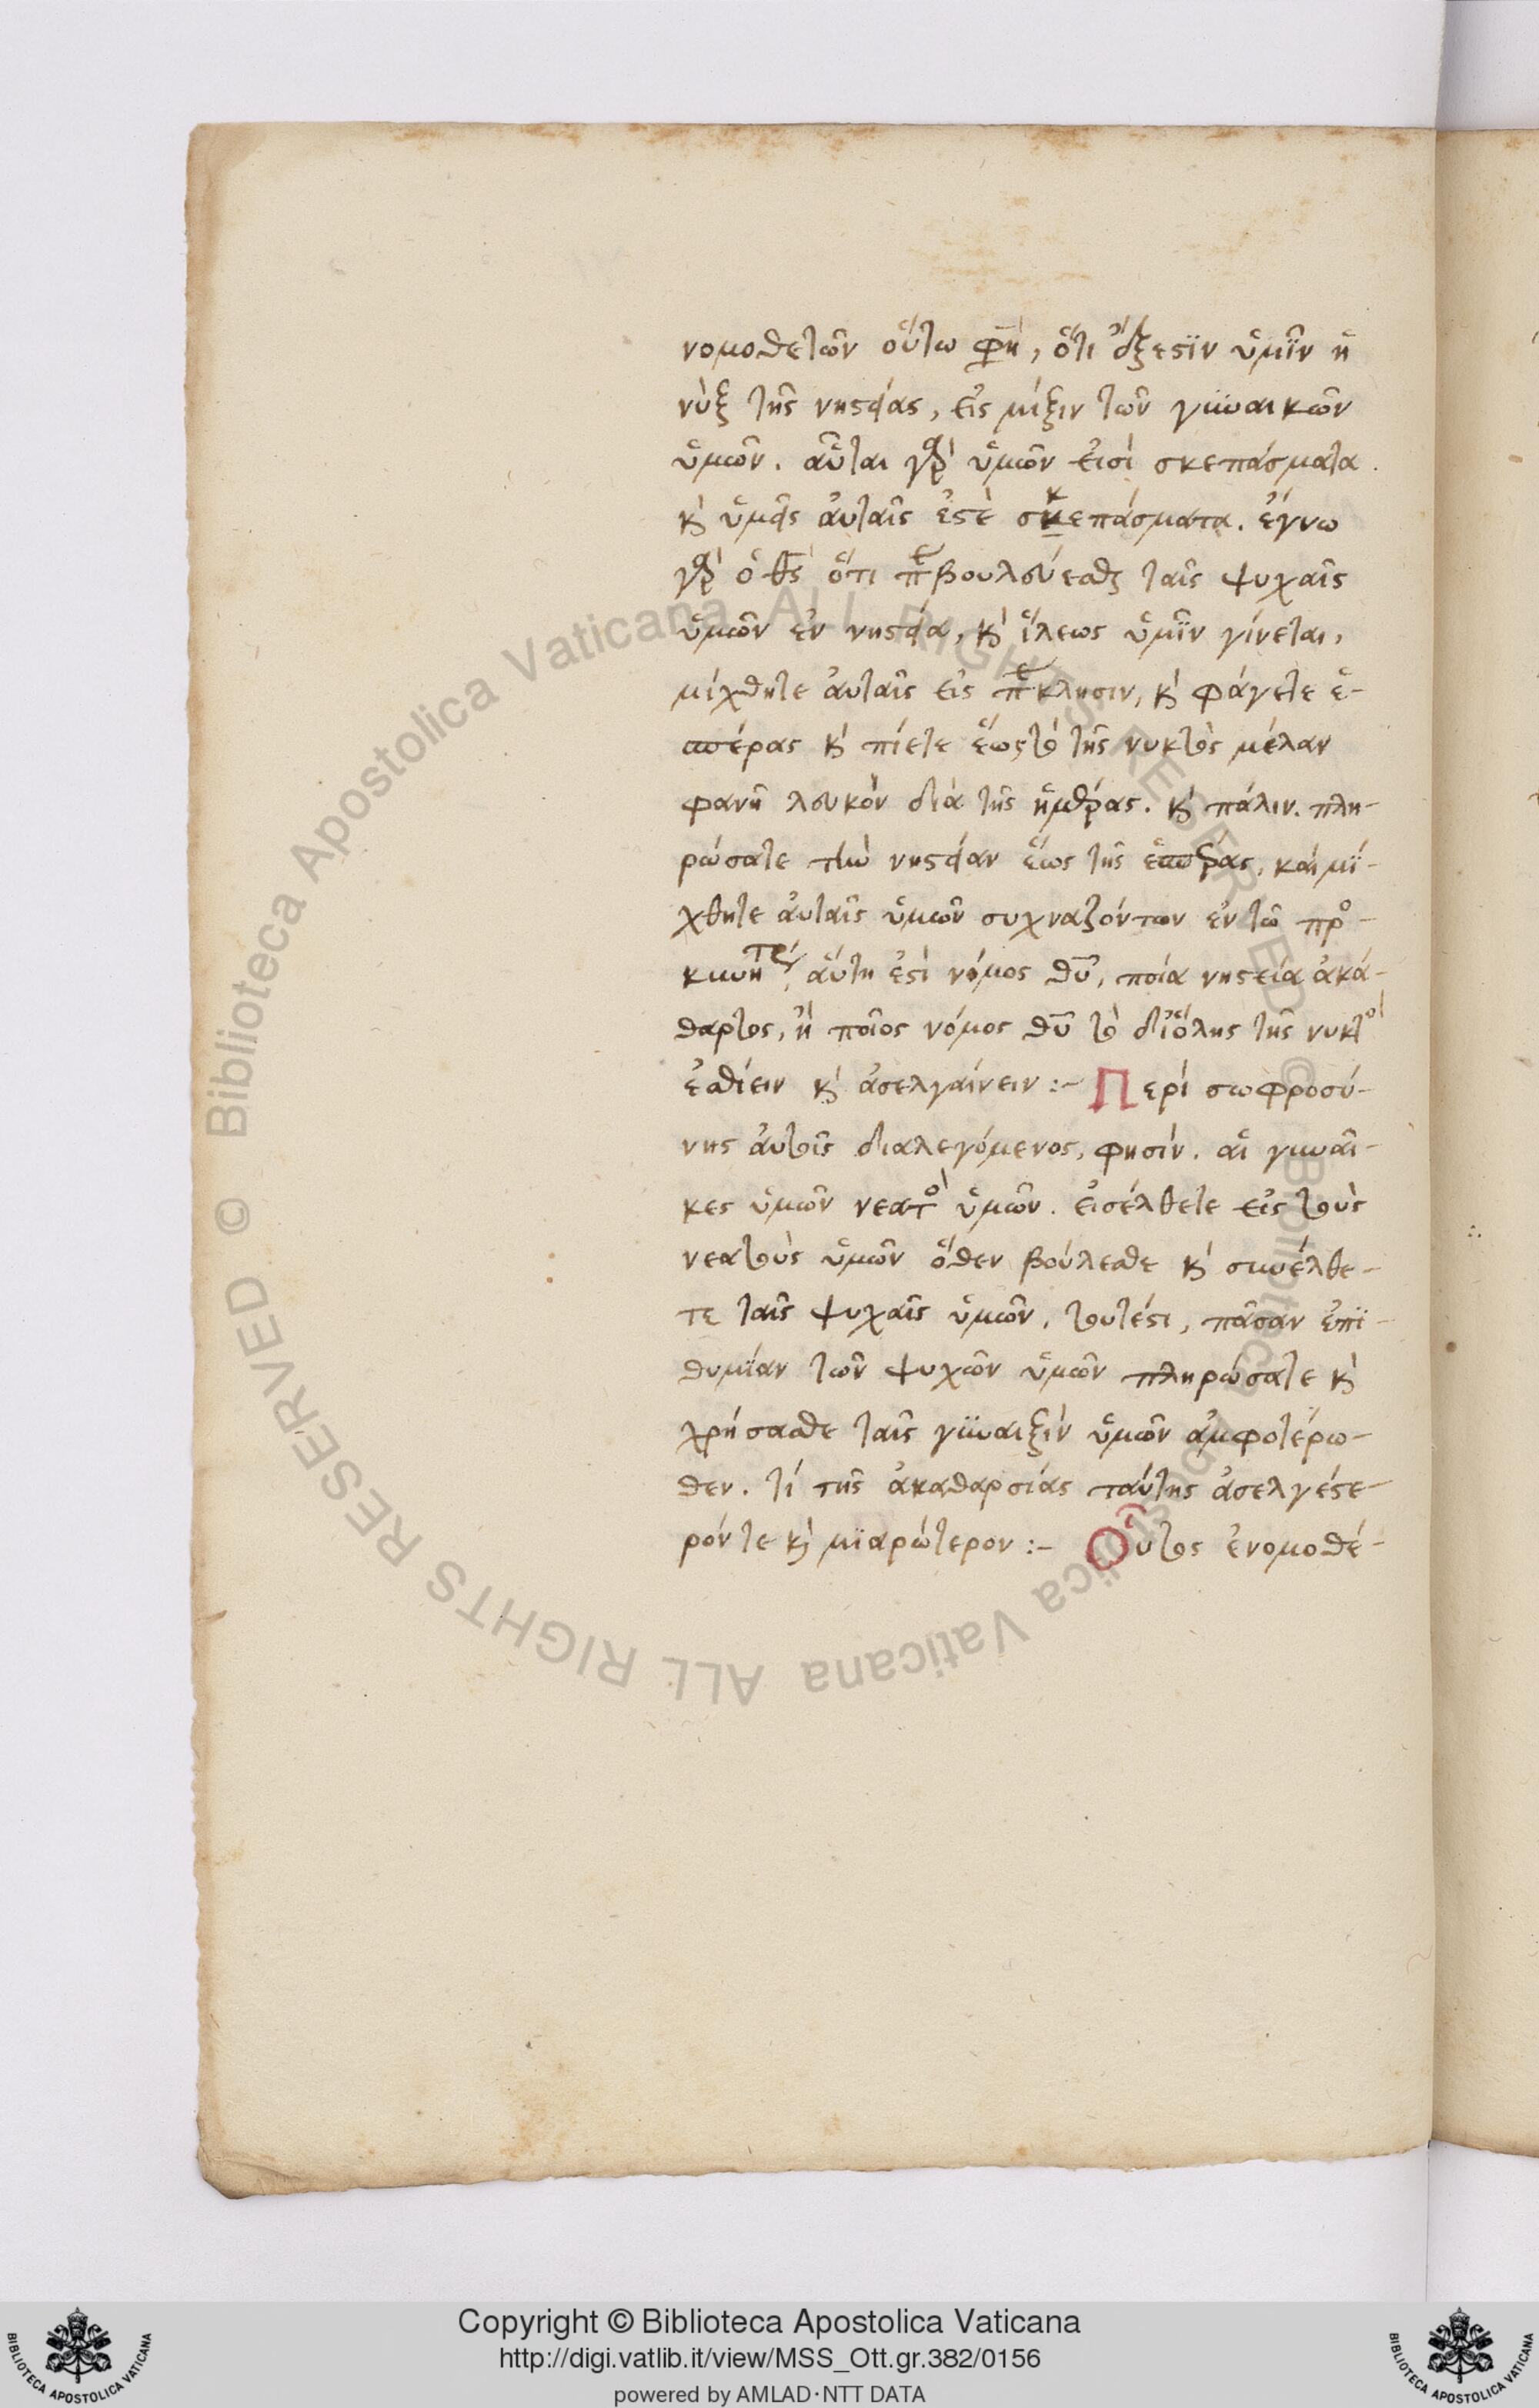 νομοθετῶν οὕτω φη, ὅτι ἔξεστϊν ὑμῖν ἡ
νὺξ τῆς νηστείας, εἰς μίξιν τῶν γϋναικῶν
ὑμῶν. αὗται γὰρ ὑμῶν εἰσὶ σκεπάσματα.
κὶ ὑμεῖς ἀυταῖς ἐστὲ σκεπάσματα. ἔγνω
γὰρ ὁ θς ὅτι βουλεύεσθε ταῖς ψυχαῖς
ὑμῶν ἐν νηστεία, κὶ ἵλεως ὑμῖν γίνεται,
μίχθητε ἀυταῖς εἰς κλησιν, κὶ φάγετε ἑ-
σπέρας κὶ πίετε ἕως τὸ τῆς νυκτὸς μέλαν
φανῆ λευκὸν διὰ τῆς ἡμέρας. κὶ πάλιν. πλη-
ρώσατε τὴν νηστείαν ἕως τῆς ἑσπέρας, καὶ μί-
χθητε ἀυταῖς ὑμῶν συχναζόντων ἐν τῶ προ-
κυνητ αὕτη ἐστὶ νόμος θυ, ποία νηστεία ἀκά-
θαρτος, ἢ ποῖος νόμος θυ τὸ διόλης τῆς νυκτὸ
ἐσθίειν κὶ ἀσελγαίνειν :- Περὶ σωφροσύ-
νης ἀυτοῖς διαλεγόμενος, φησὶν. αἱ γυναῖ-
κες ὑμῶν νεατὸ ὑμῶν. εἰσέλθετε εἰς τοὺς
νεατοὺς ὑμῶν ὅθεν βούλεσθε κὶ συνέλθε-
τε ταῖς ψυχαῖς ὑμῶν, τουτέστι, πᾶσαν ἐπϊ-
θυμίαν τῶν ψυχῶν ὑμῶν πληρώσατε κὶ
χρήσασθε ταῖς γϋναιξὶν ὑμῶν ἀμφοτέρω-
θεν. τί τῆς ἀκαθαρσίας ταύτης ἀσελγέστε-
ρόν τε κὶ μϊαρώτερον :- Οὗτος ἐνομοθέ-
Copyright © Biblioteca Apostolica Vaticana
http://digi.vatlib.it/view/MSS_Ott.gr.382/0156
powered by AMLAD·NTT DATA
BIBLIOTECA APOSTOLICA VATICANA
BIBLIOTECA APOSTOLICA VATICANA
© Biblioteca Apostolica Vaticana ALL RIGHTS RESERVED © Biblioteca Apostolica Vaticana ALL RIGHTS RESERVED